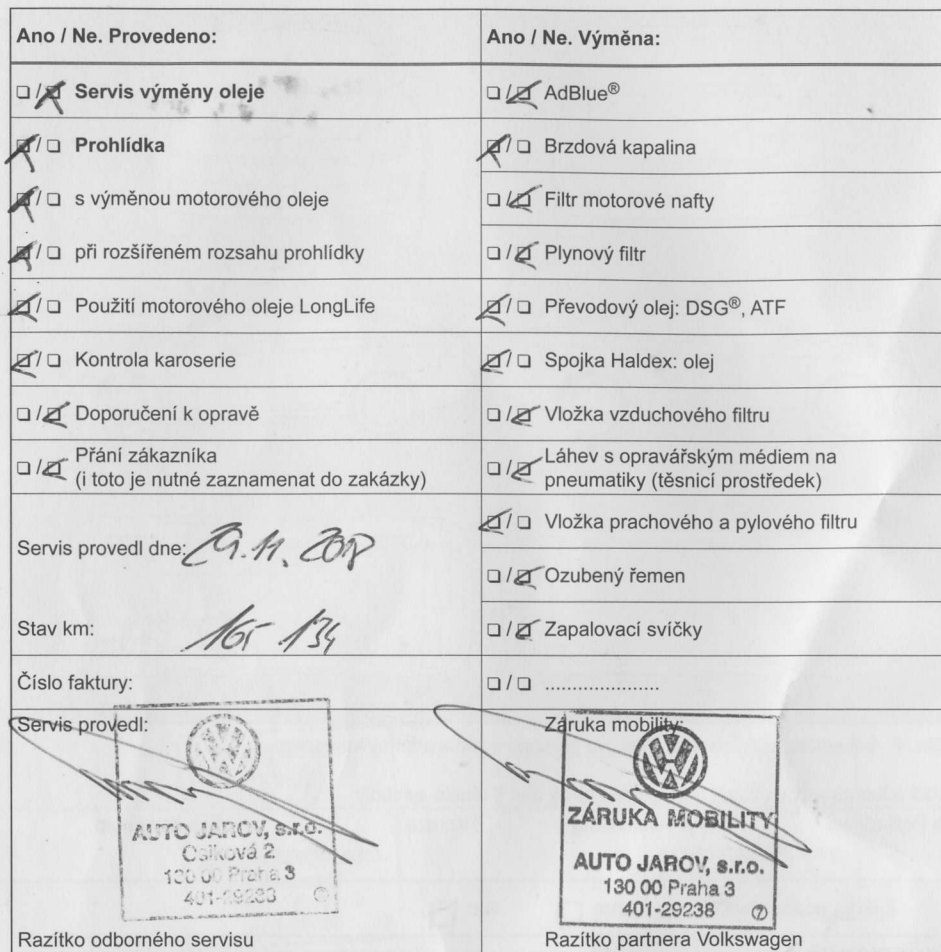 Ano / Ne. Provedeno:
Servis výměny oleje
Prohlídka
s výměnou motorového oleje
při rozšířeném rozsahu prohlídky
Použití motorového oleje LongLife
Kontrola karoserie
Doporučení k opravě
Přání zákazníka
(i toto je nutné zaznamenat do zakázky)
Servis provedl dne: 29.11.2018
Stav km: 165 134
Číslo faktury:
Servis provedl:
AUTO JAROV, s.r.o.
Osiková 2
130 00 Praha 3
401-29238
Razítko odborného servisu
Ano / Ne. Výměna:
AdBlue®
Brzdová kapalina
Filtr motorové nafty
Plynový filtr
Převodový olej: DSG®, ATF
Spojka Haldex: olej
Vložka vzduchového filtru
Láhev s opravářským médiem na
pneumatiky (těsnicí prostředek)
Vložka prachového a pylového filtru
Ozubený řemen
Zapalovací svíčky
......................
Záruka mobility:
ZÁRUKA MOBILITY
AUTO JAROV, s.r.o.
130 00 Praha 3
401-29238 7
Razítko partnera Volkswagen